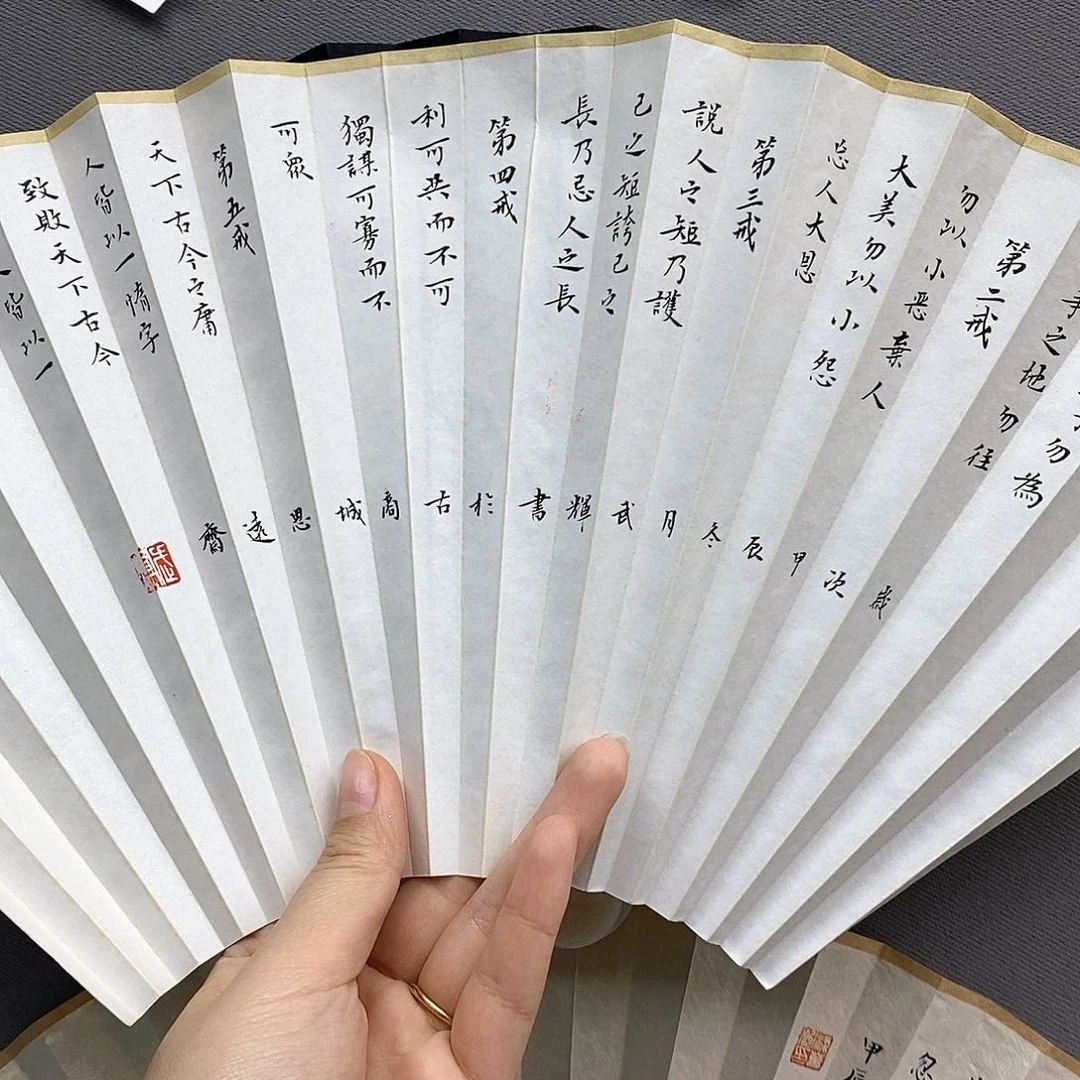 勿為
之地勿往
第二戒
勿以小恶棄人
大美勿以小怨
忘人大恩
第三戒
説人之短乃護
己之短誇己之
長乃忌人之長
第四戒
利可共而不可
獨謀可寡而不
可眾
第五戒
天下古今之庸
人皆以一惰字
致敗天下古今
人皆以一
歲次甲辰冬月武輝書於古商城思遠齋
甲辰